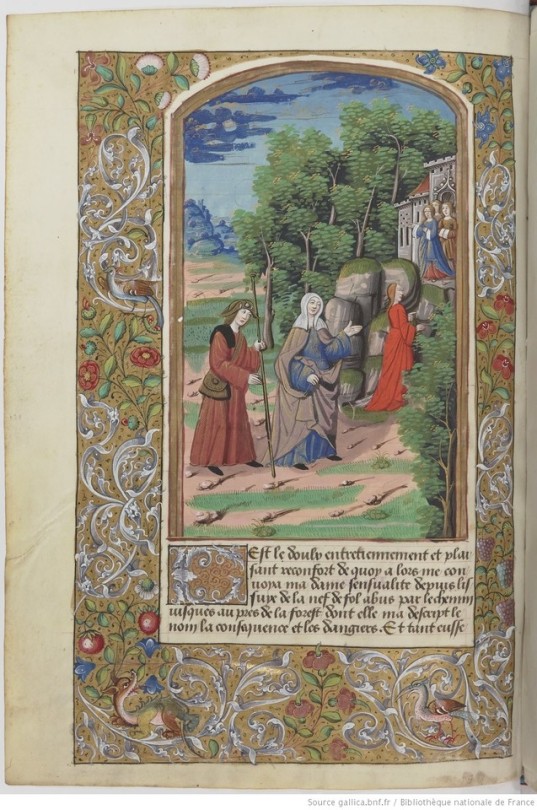 Est le doulx entretiennement et plai
sant reconfort de quoy a lors me con
uoya ma dame sensualite depuis lis
sue de la nef de fol abus par le chemin
iusques au pres de la forest dont elle ma descript le
nom la consequence et les dangiers. Et tant eusse
Source gallica.bnf.fr / Bibliothèque nationale de France